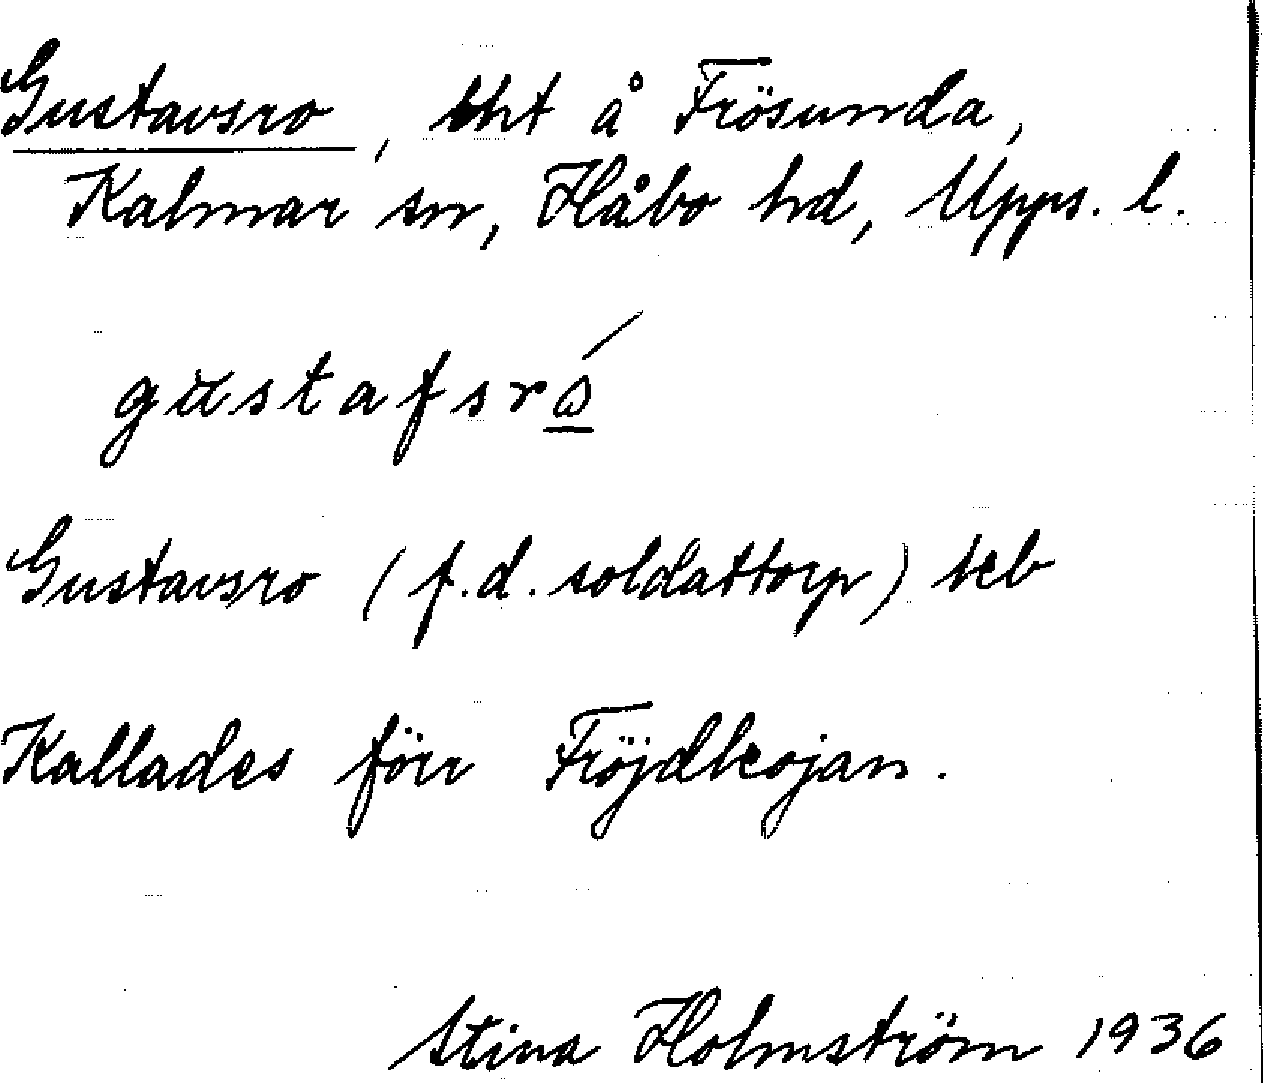 Gustavsro, lht å Frösunda,
Kalmar sn, Håbo hd, Upps. l.
gustafsró
Gustavsro (f.d. soldattorp) teb
Kallades förr Fröjdkojan.
Stina Holmström 1936